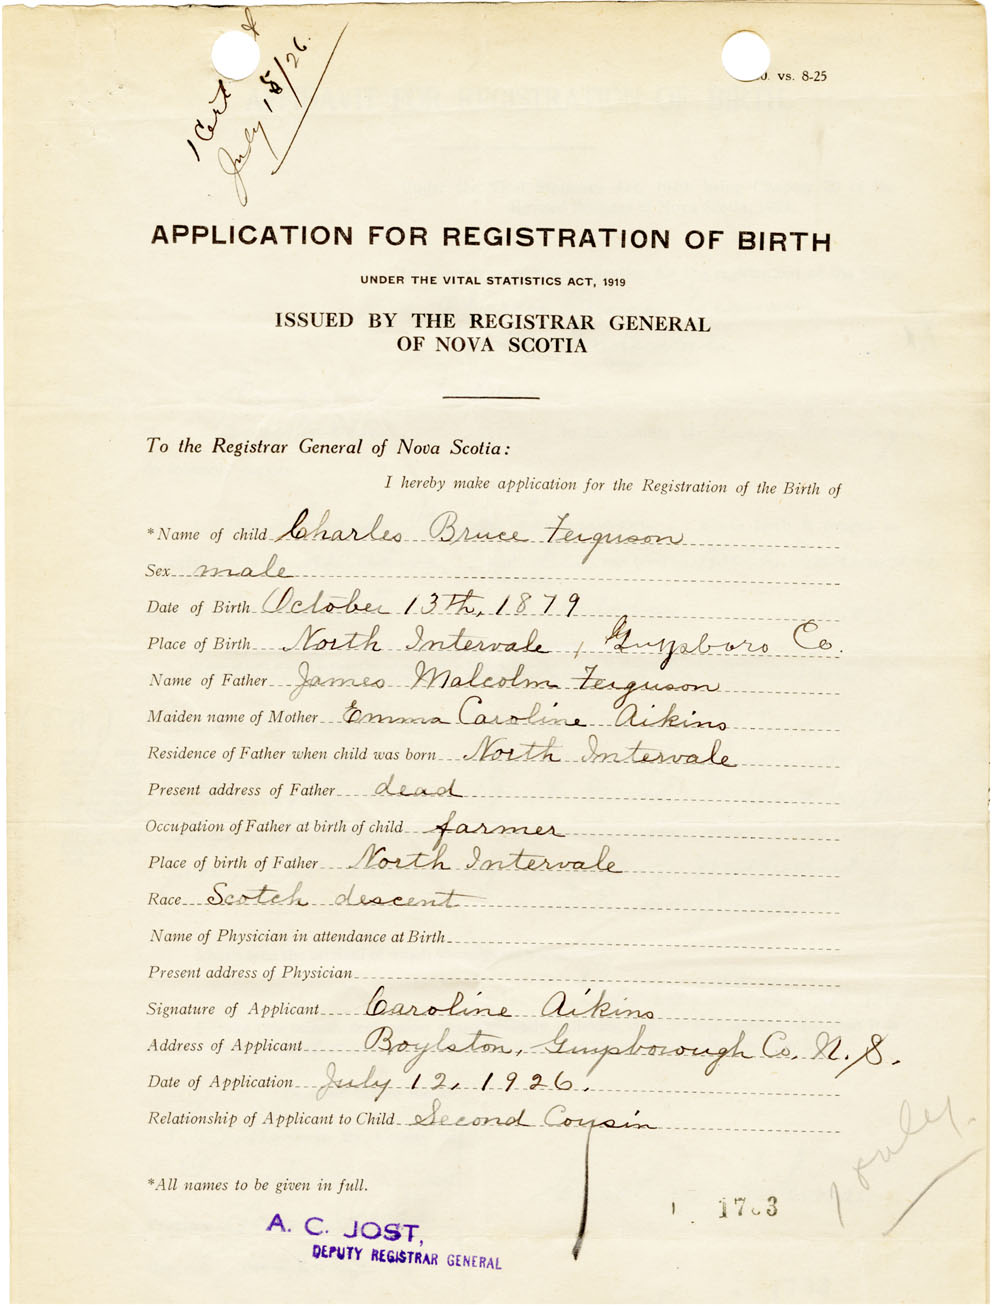 1 Cert
July 15/26.
vs. 8-25
APPLICATION FOR REGISTRATION OF BIRTH
UNDER THE VITAL STATISTICS ACT, 1919
ISSUED BY THE REGISTRAR GENERAL
OF NOVA SCOTIA
To the Registrar General of Nova Scotia:
I hereby make application for the Registration of the Birth of
*Name of child Charles Bruce Ferguson
Sex male
Date of Birth October 13th, 1879
Place of Birth North Intervale, Guysboro Co.
Name of Father James Malcolm Ferguson
Maiden name of Mother Emma Caroline Aikins
Residence of Father when child was born North Intervale
Present address of Father dead
Occupation of Father at birth of child farmer
Place of birth of Father North Intervale
Race Scotch descent
Name of Physician in attendance at Birth
Present address of Physician
Signature of Applicant Caroline Aikins
Address of Applicant Boylston, Guysborough Co. N. S.
Date of Application July 12, 1926.
Relationship of Applicant to Child Second Cousin
*All names to be given in full.
A. C. JOST,
DEPUTY REGISTRAR GENERAL